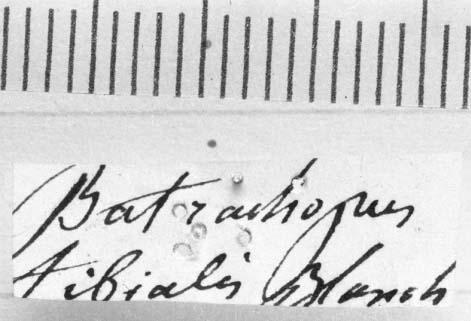 Batrachopus
tibialis Blanch